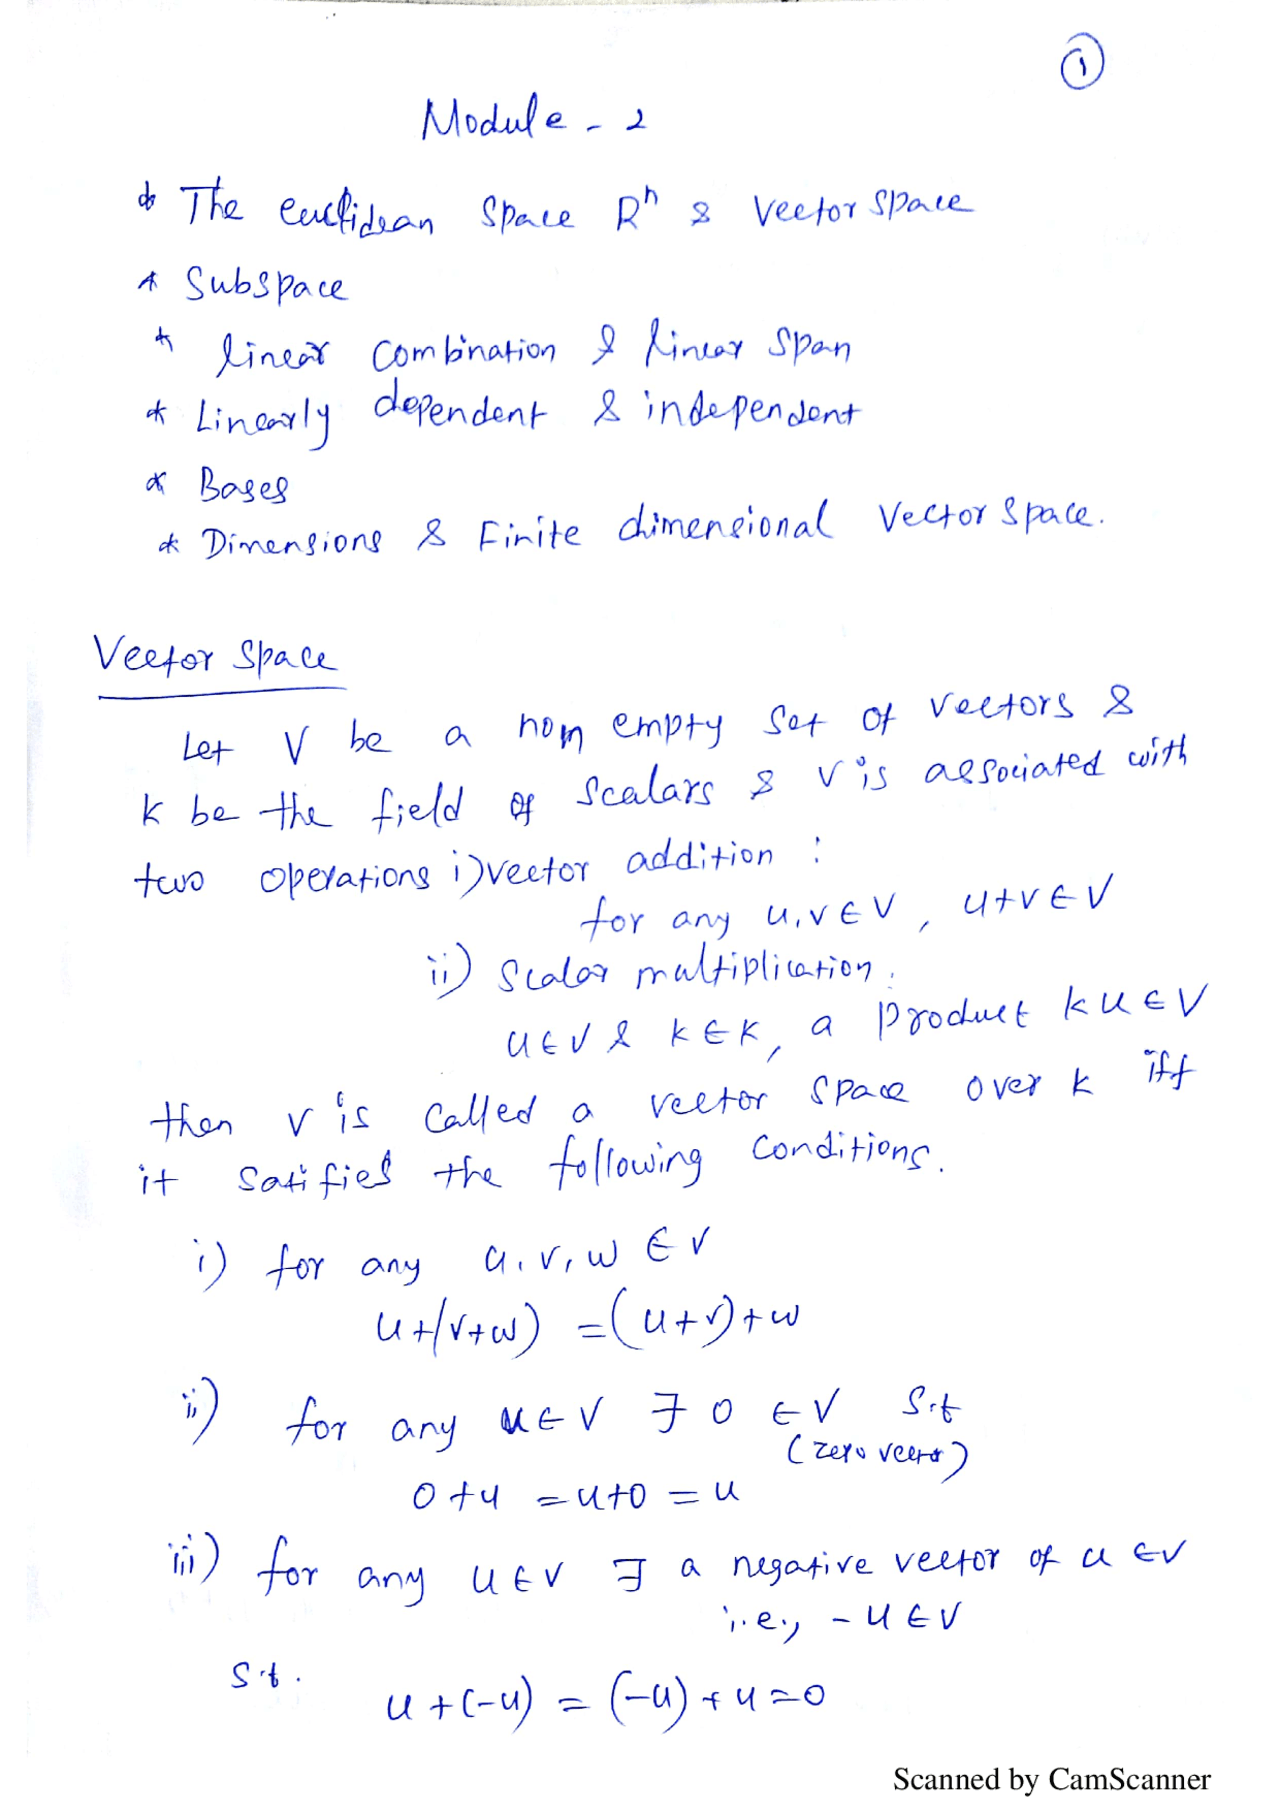 1
Module - 2
* The euclidean space Rⁿ & Vector space
* Subspace
* linear combination & linear span
* Linearly dependent & independent
* Bases
* Dimensions & Finite dimensional Vector space.
Vector space
Let V be a non empty set of vectors &
k be the field of scalars & V is associated with
two operations i) vector addition :
for any u,v ∈ V , u+v ∈ V
ii) Scalar multiplication.
u ∈ V & k ∈ K, a product ku ∈ V
then V is called a vector space over k iff
it satifies the following conditions.
i) for any u, v, w ∈ V
u+(v+w) = (u+v)+w
ii) for any u ∈ V ∃ 0 ∈ V s.t
(zero vector)
0+u = u+0 = u
iii) for any u ∈ V ∃ a negative vector of u ∈ V
i.e., -u ∈ V
s.t.
u+(-u) = (-u)+u=0
Scanned by CamScanner